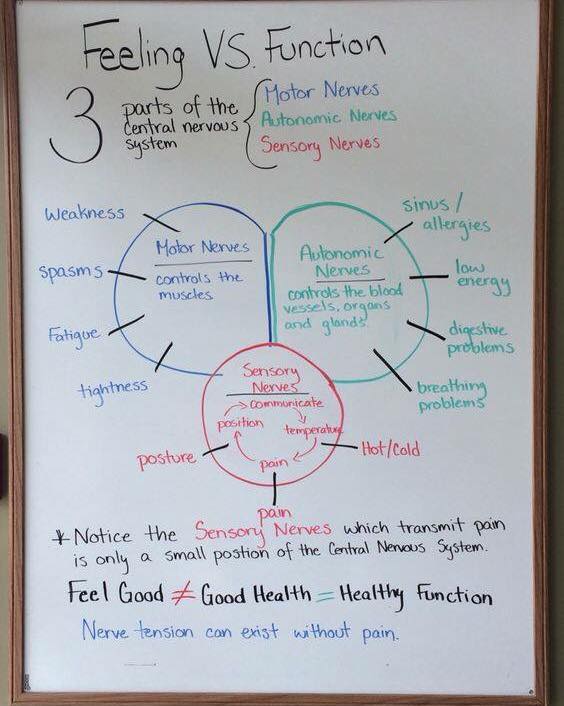 Feeling VS. Function
3 parts of the
central nervous
system
Motor Nerves
Autonomic Nerves
Sensory Nerves
Weakness
Spasms
Fatigue
tightness
Motor Nerves
controls the
muscles
Autonomic
Nerves
controls the blood
vessels, organs
and glands
sinus /
allergies
low
energy
digestive
problems
breathing
problems
Sensory
Nerves
communicate
position
temperature
pain
posture
Hot/Cold
pain
* Notice the Sensory Nerves which transmit pain
is only a small postion of the Central Nervous System.
Feel Good ≠ Good Health = Healthy Function
Nerve tension can exist without pain.